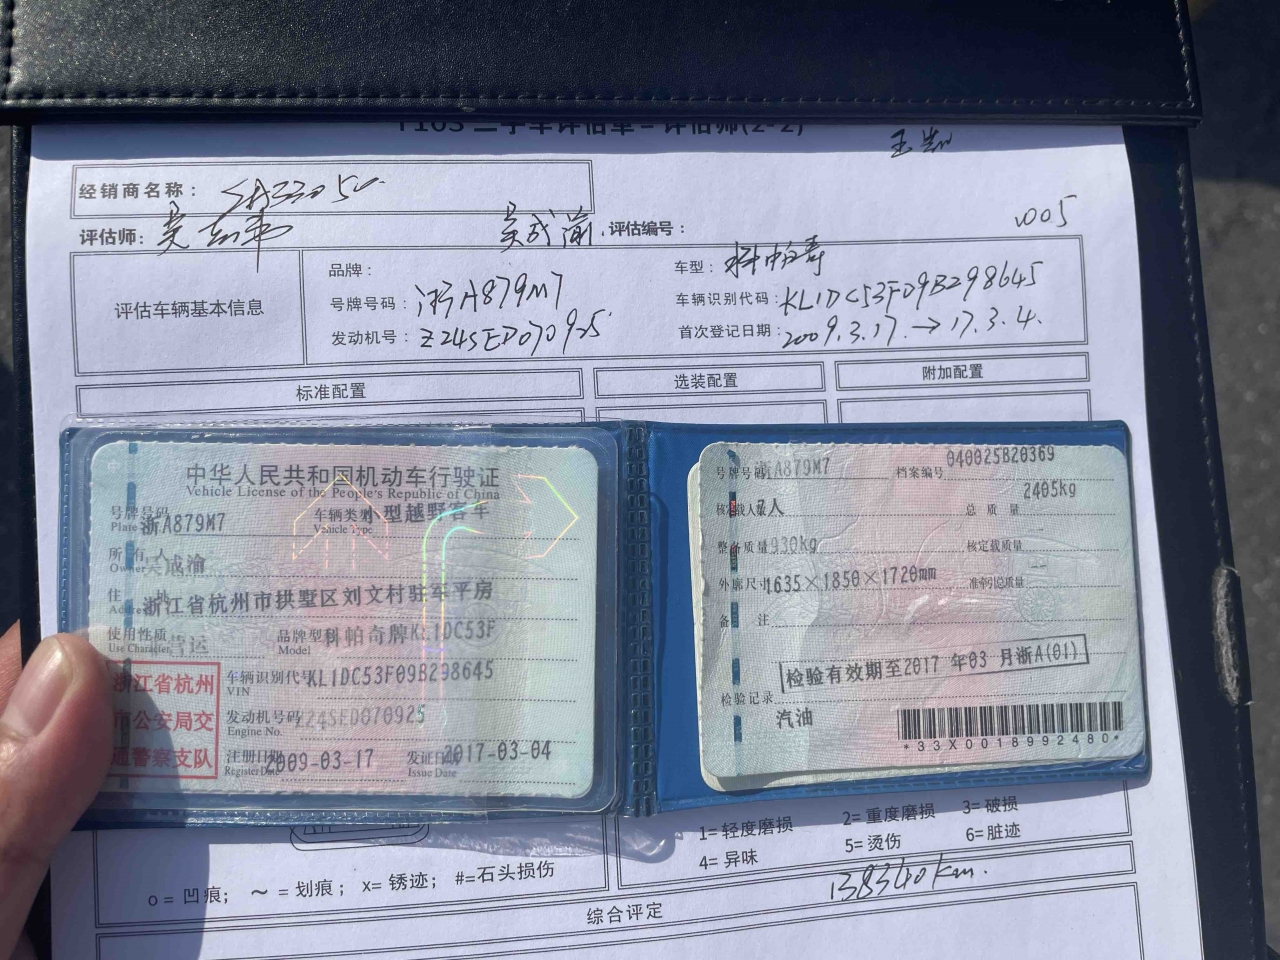 T103 二手车评估单 - 评估师(2-2)
经销商名称： SA33050
评估师: 吴志军 吴成渝. 评估编号： 1005
评估车辆基本信息
品牌： 车型： 科帕奇
号牌号码： 浙A879M7 车辆识别代码： KL1DC53F09B298645
发动机号： Z24SED070925 首次登记日期： 2009.3.17. → 17.3.4.
标准配置 选装配置 附加配置
中华人民共和国机动车行驶证
Vehicle License of the People's Republic of China
号牌号码 Plate 浙A879M7 车辆类型 Vehicle Type 小型越野客车
所有人 Owner 吴成渝
住址 Address 浙江省杭州市拱墅区刘文村驻车平房
使用性质 Use Character 营运 品牌型号 Model 科帕奇牌KL1DC53F
浙江省杭州
市公安局交
通警察支队
车辆识别代号 VIN KL1DC53F09B298645
发动机号码 Engine No. Z24SED070925
注册日期 Register Date 2009-03-17 发证日期 Issue Date 2017-03-04
号牌号码 浙A879M7 档案编号 040025820369
核定载人数 人 总质量 2405kg
整备质量 930kg 核定载质量
外廓尺寸 4635×1850×1720mm 准牵引总质量
备注
检验有效期至2017年03月浙A(01)
检验记录
汽油
*33X0018992480*
1= 轻度磨损 2= 重度磨损 3= 破损
4= 异味 5= 烫伤 6= 脏迹
o = 凹痕； ～ = 划痕； x= 锈迹； #=石头损伤
138340km.
综合评定